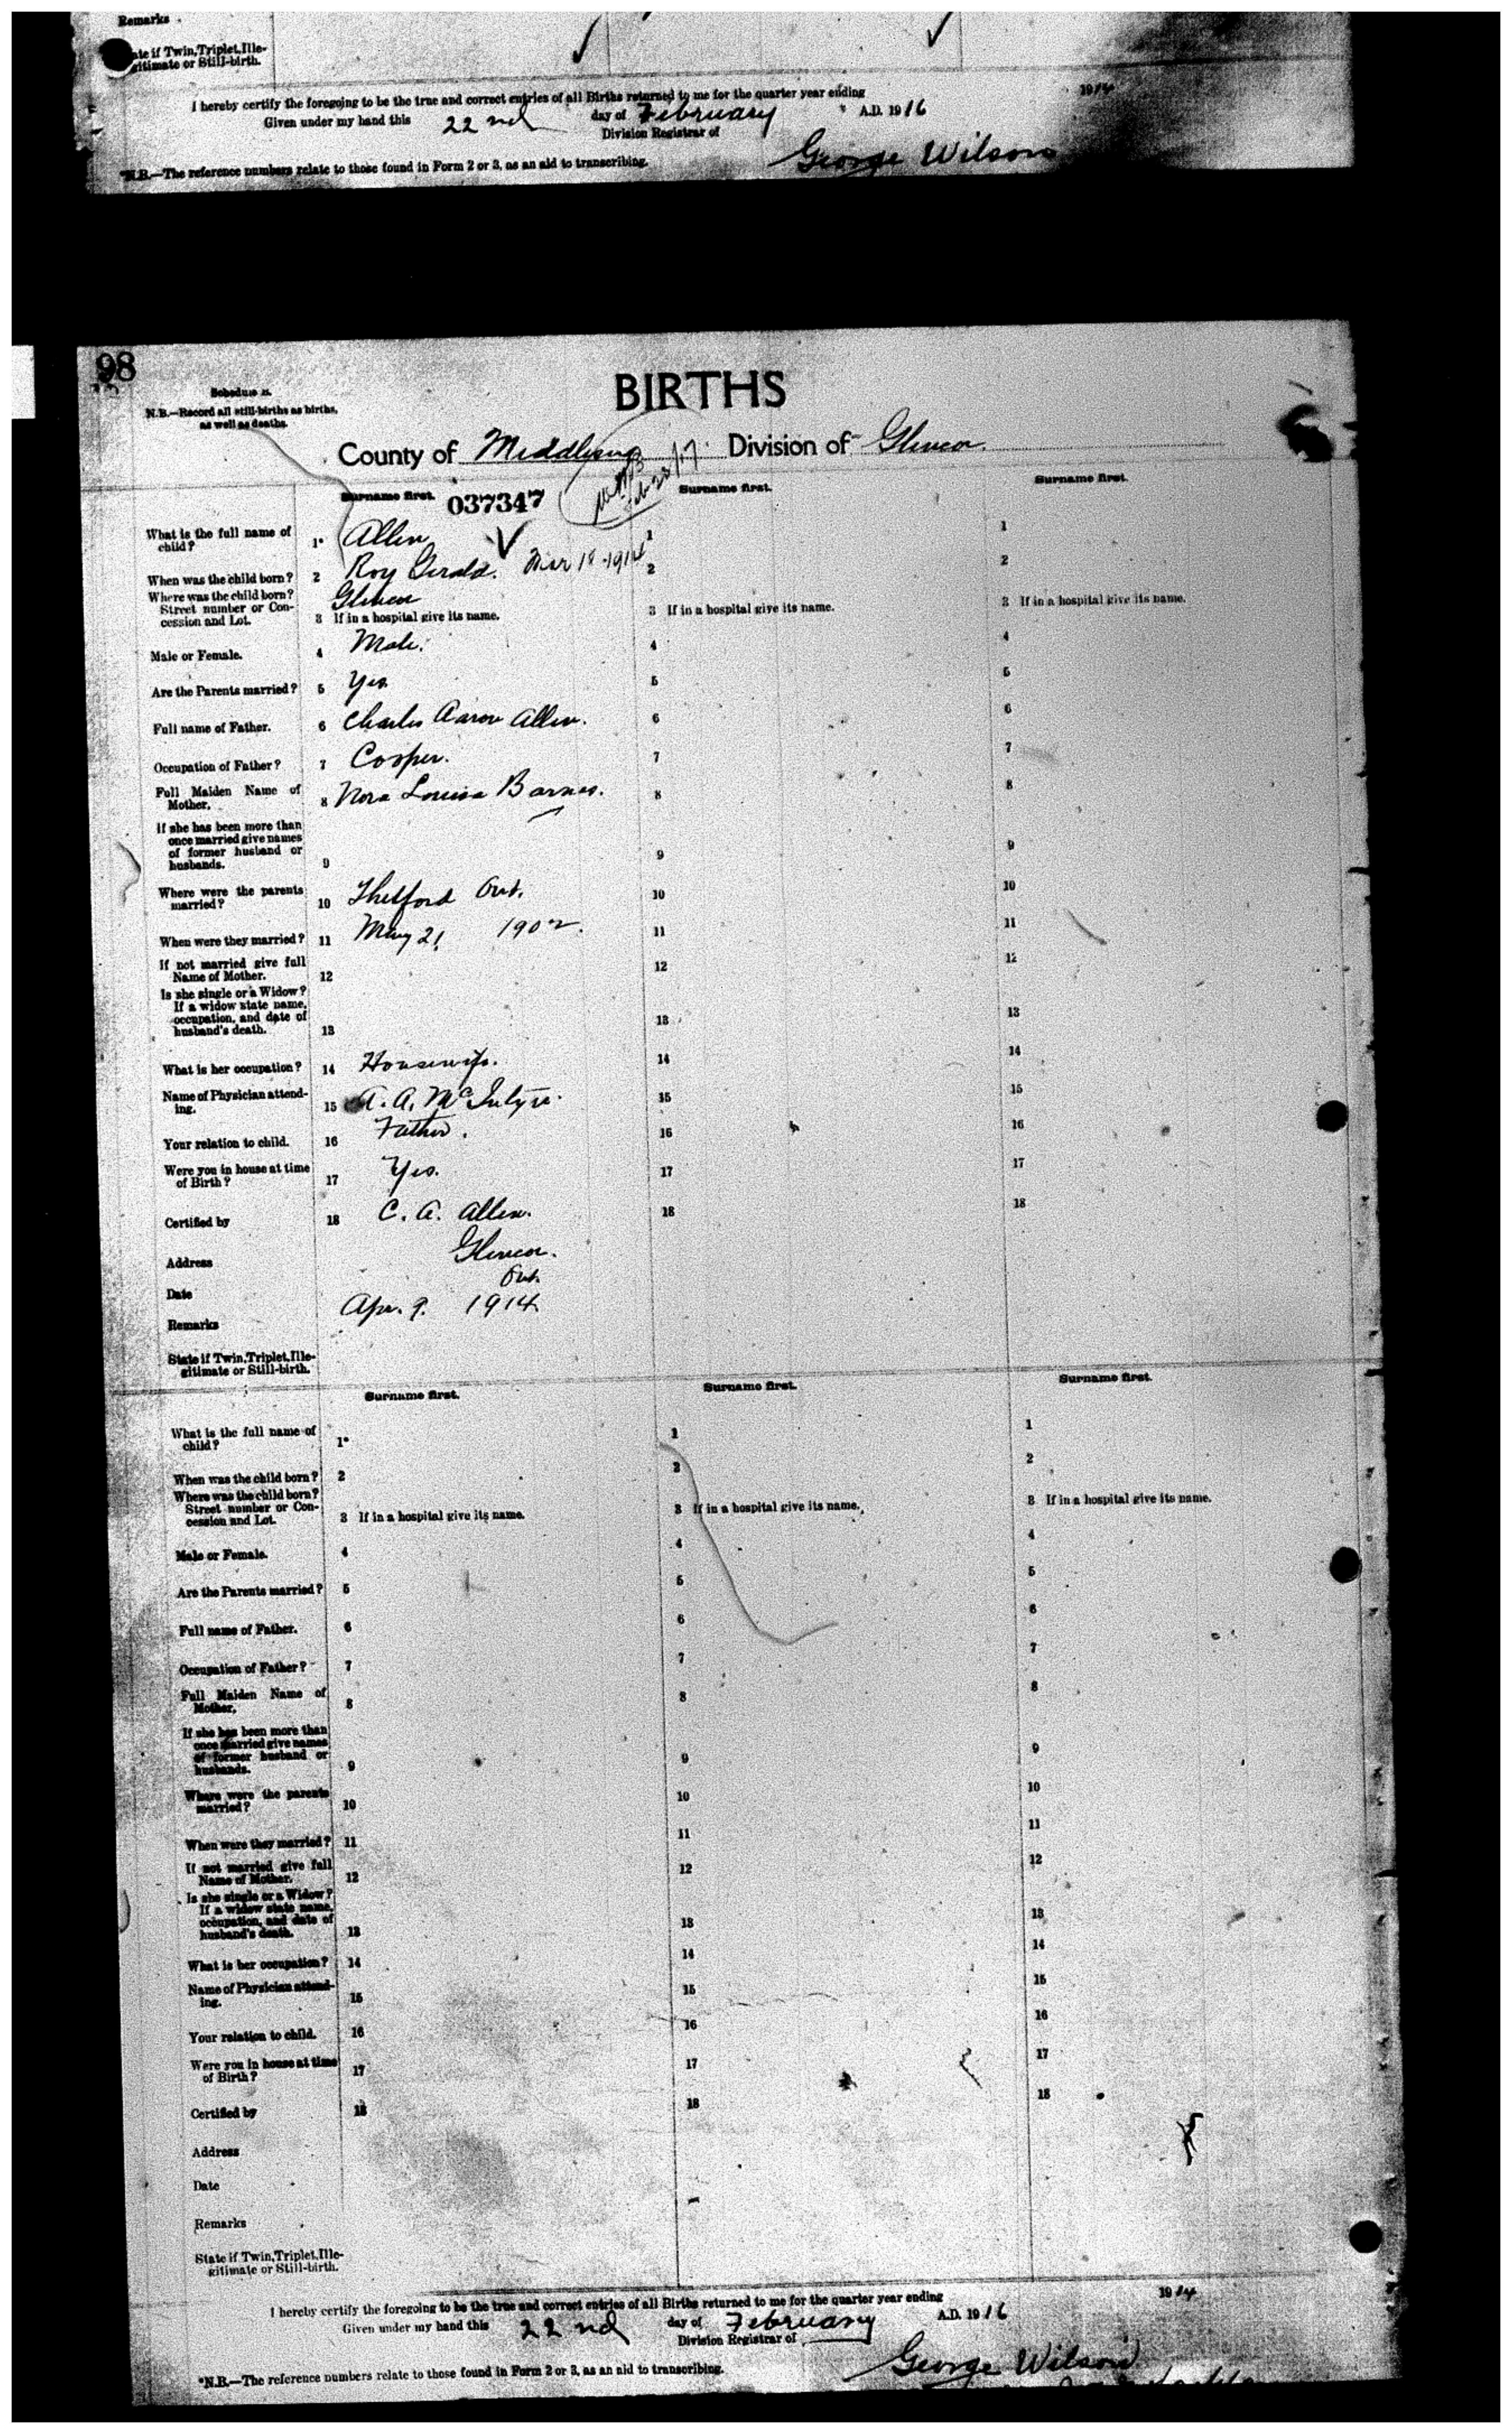 Remarks
ate if Twin, Triplet, Ille-
gitimate or Still-birth.
I hereby certify the foregoing to be the true and correct entries of all Births returned to me for the quarter year ending 1914
Given under my hand this 22nd day of February A.D. 1916
Division Registrar of
George Wilson
*N.B.—The reference numbers relate to those found in Form 2 or 3, as an aid to transcribing.
98
BIRTHS
N.B.—Record all still-births as births,
as well as deaths.
County of Middlesex Division of Glencoe.
Surname first. 037347 Surname first. Surname first.
Feb 28/17
What is the full name of
child? 1* Allen 1 1
Roy Gerald. Mar 18-1914
When was the child born? 2 2 2
Where was the child born? Glencoe
Street number or Con-
cession and Lot. 3 If in a hospital give its name. 3 If in a hospital give its name. 3 If in a hospital give its name.
Male or Female. 4 Male. 4 4
Are the Parents married? 5 Yes 5 5
Full name of Father. 6 Charles Aaron Allen. 6 6
Occupation of Father? 7 Cooper. 7 7
Full Maiden Name of
Mother. 8 Nora Louisa Barnes. 8 8
If she has been more than
once married give names
of former husband or
husbands. 9 9 9
Where were the parents
married? 10 Thetford Ont. 10 10
When were they married? 11 May 21 1902. 11 11
If not married give full
Name of Mother. 12 12 12
Is she single or a Widow?
If a widow state name,
occupation, and date of
husband's death. 13 13 13
What is her occupation? 14 Housewife. 14 14
Name of Physician attend-
ing. 15 A. A. McIntyre. 15 15
Your relation to child. 16 Father. 16 16
Were you in house at time
of Birth? 17 Yes. 17 17
Certified by 18 C. A. Allen. 18 18
Address Glencoe.
Ont.
Date Apr. 9. 1914
Remarks
State if Twin, Triplet, Ille-
gitimate or Still-birth.
Surname first. Surname first. Surname first.
What is the full name of
child? 1* 1 1
When was the child born? 2 2 2
Where was the child born?
Street number or Con-
cession and Lot. 3 If in a hospital give its name. 3 If in a hospital give its name. 3 If in a hospital give its name.
Male or Female. 4 4 4
Are the Parents married? 5 5 5
Full name of Father. 6 6 6
Occupation of Father? 7 7 7
Full Maiden Name of
Mother. 8 8 8
If she has been more than
once married give names
of former husband or
husbands. 9 9 9
Where were the parents
married? 10 10 10
When were they married? 11 11 11
If not married give full
Name of Mother. 12 12 12
Is she single or a Widow?
If a widow state name,
occupation, and date of
husband's death. 13 13 13
What is her occupation? 14 14 14
Name of Physician attend-
ing. 15 15 15
Your relation to child. 16 16 16
Were you in house at time
of Birth? 17 17 17
Certified by 18 18 18
Address
Date
Remarks
State if Twin, Triplet, Ille-
gitimate or Still-birth.
I hereby certify the foregoing to be the true and correct entries of all Births returned to me for the quarter year ending 1914
Given under my hand this 22nd day of February A.D. 1916
Division Registrar of
George Wilson
*N.B.—The reference numbers relate to those found in Form 2 or 3, as an aid to transcribing.